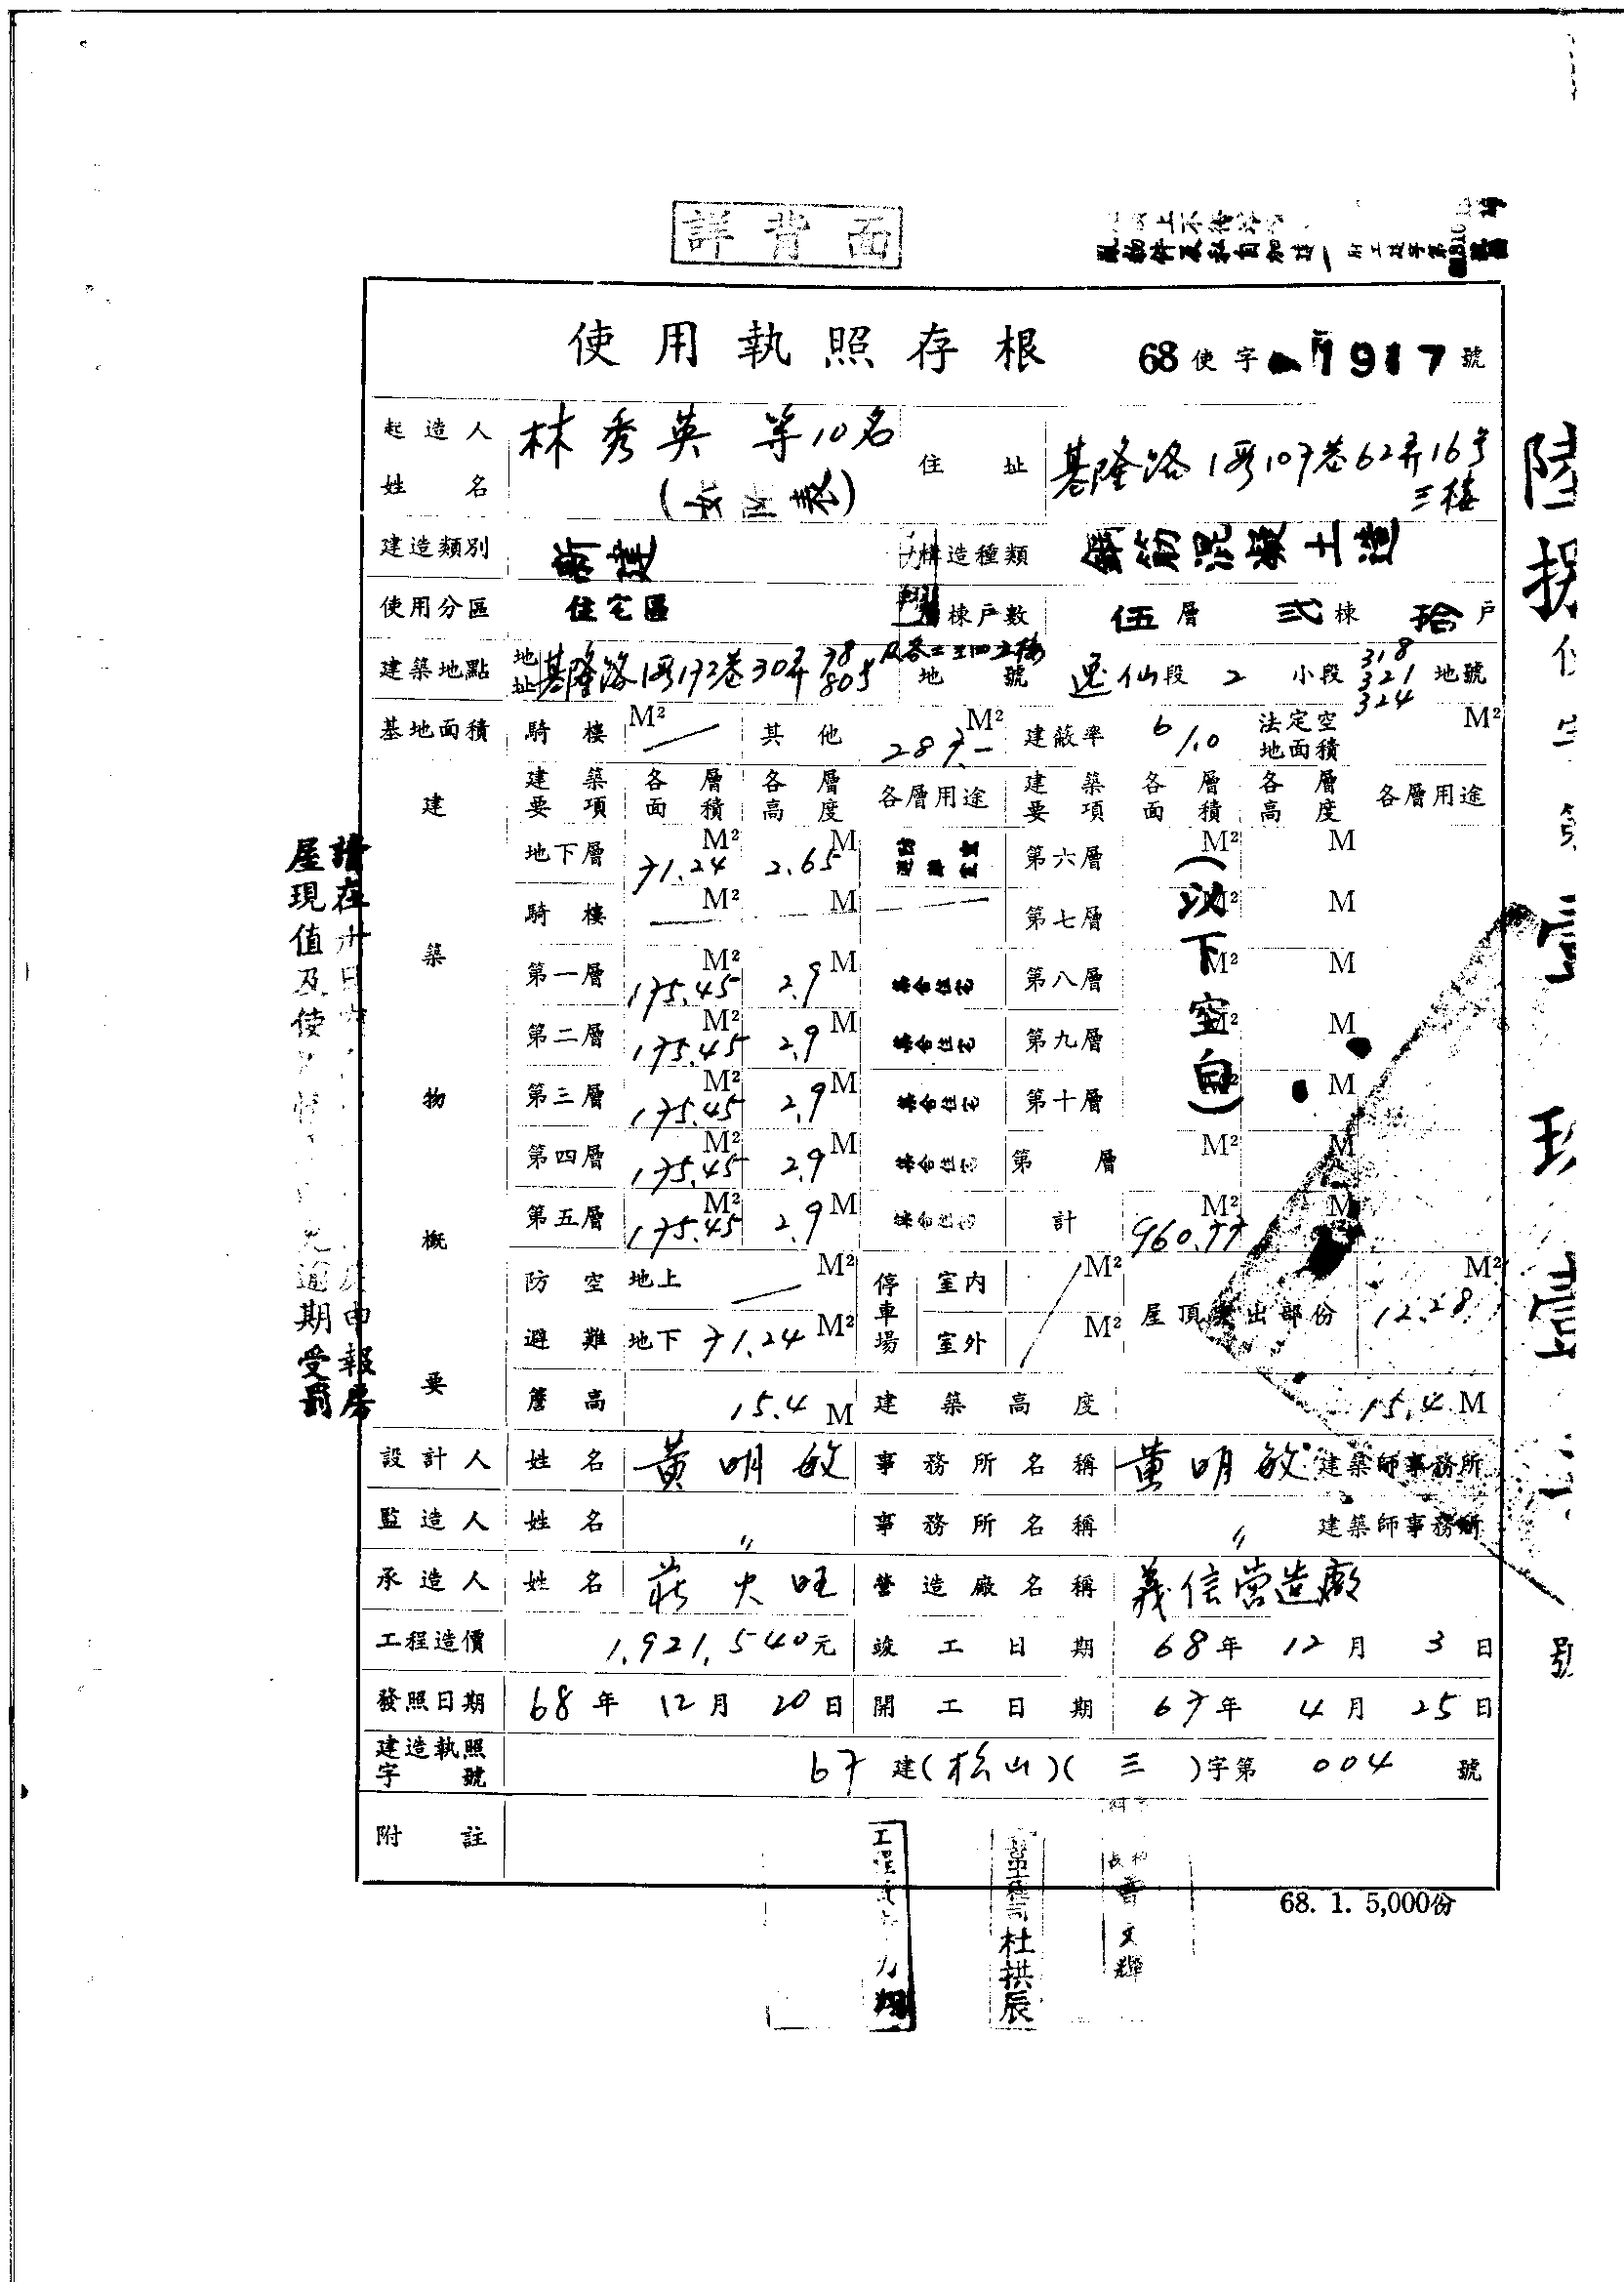 詳背面
使用執照存根 68使字 1917號
起造人姓名 林秀英 等10名 住址 基隆路1段107巷62弄16号三樓
建造類別 新建 構造種類 鋼筋混凝土造
使用分區 住宅區 棟戶數 伍層 弍棟 拾戶
建築地點 地址 基隆路1段172巷30弄78 80号及各二三四五樓 地號 逸仙段 2 小段 318 321 324 地號
基地面積 騎樓 M² 其他 287.- M² 建蔽率 6/10 法定空地面積 M²
建築物概要
建築要項 各層面積 各層高度 各層用途 建築要項 各層面積 各層高度 各層用途
地下層 71.24 M² 2.65 M 第六層 M² M
騎樓 M² M 第七層 M² M
第一層 175.45 M² 2.9 M 集合住宅 第八層 M² M
第二層 175.45 M² 2.9 M 集合住宅 第九層 M² M
第三層 175.45 M² 2.9 M 集合住宅 第十層 M² M
第四層 175.45 M² 2.9 M 集合住宅 第 層 M² M
第五層 175.45 M² 2.9 M 集合住宅 計 960.77 M² M
(以下空白)
防空避難 地上 M² 停車場 室內 M² 屋頂突出部份 12.28 M²
地下 71.24 M² 室外 M²
簷高 15.4 M 建築高度 15.4 M
設計人 姓名 黃明敏 事務所名稱 黃明敏 建築師事務所
監造人 姓名 〃 事務所名稱 〃 建築師事務所
承造人 姓名 莊火旺 營造廠名稱 義信營造廠
工程造價 1,921,540元 竣工日期 68年 12月 3日
發照日期 68年 12月 20日 開工日期 67年 4月 25日
建造執照字號 67建(松山)(三)字第 004 號
附註
68. 1. 5,000份
杜拱辰
文輝
屋現值及使
逾期受罰
申報房